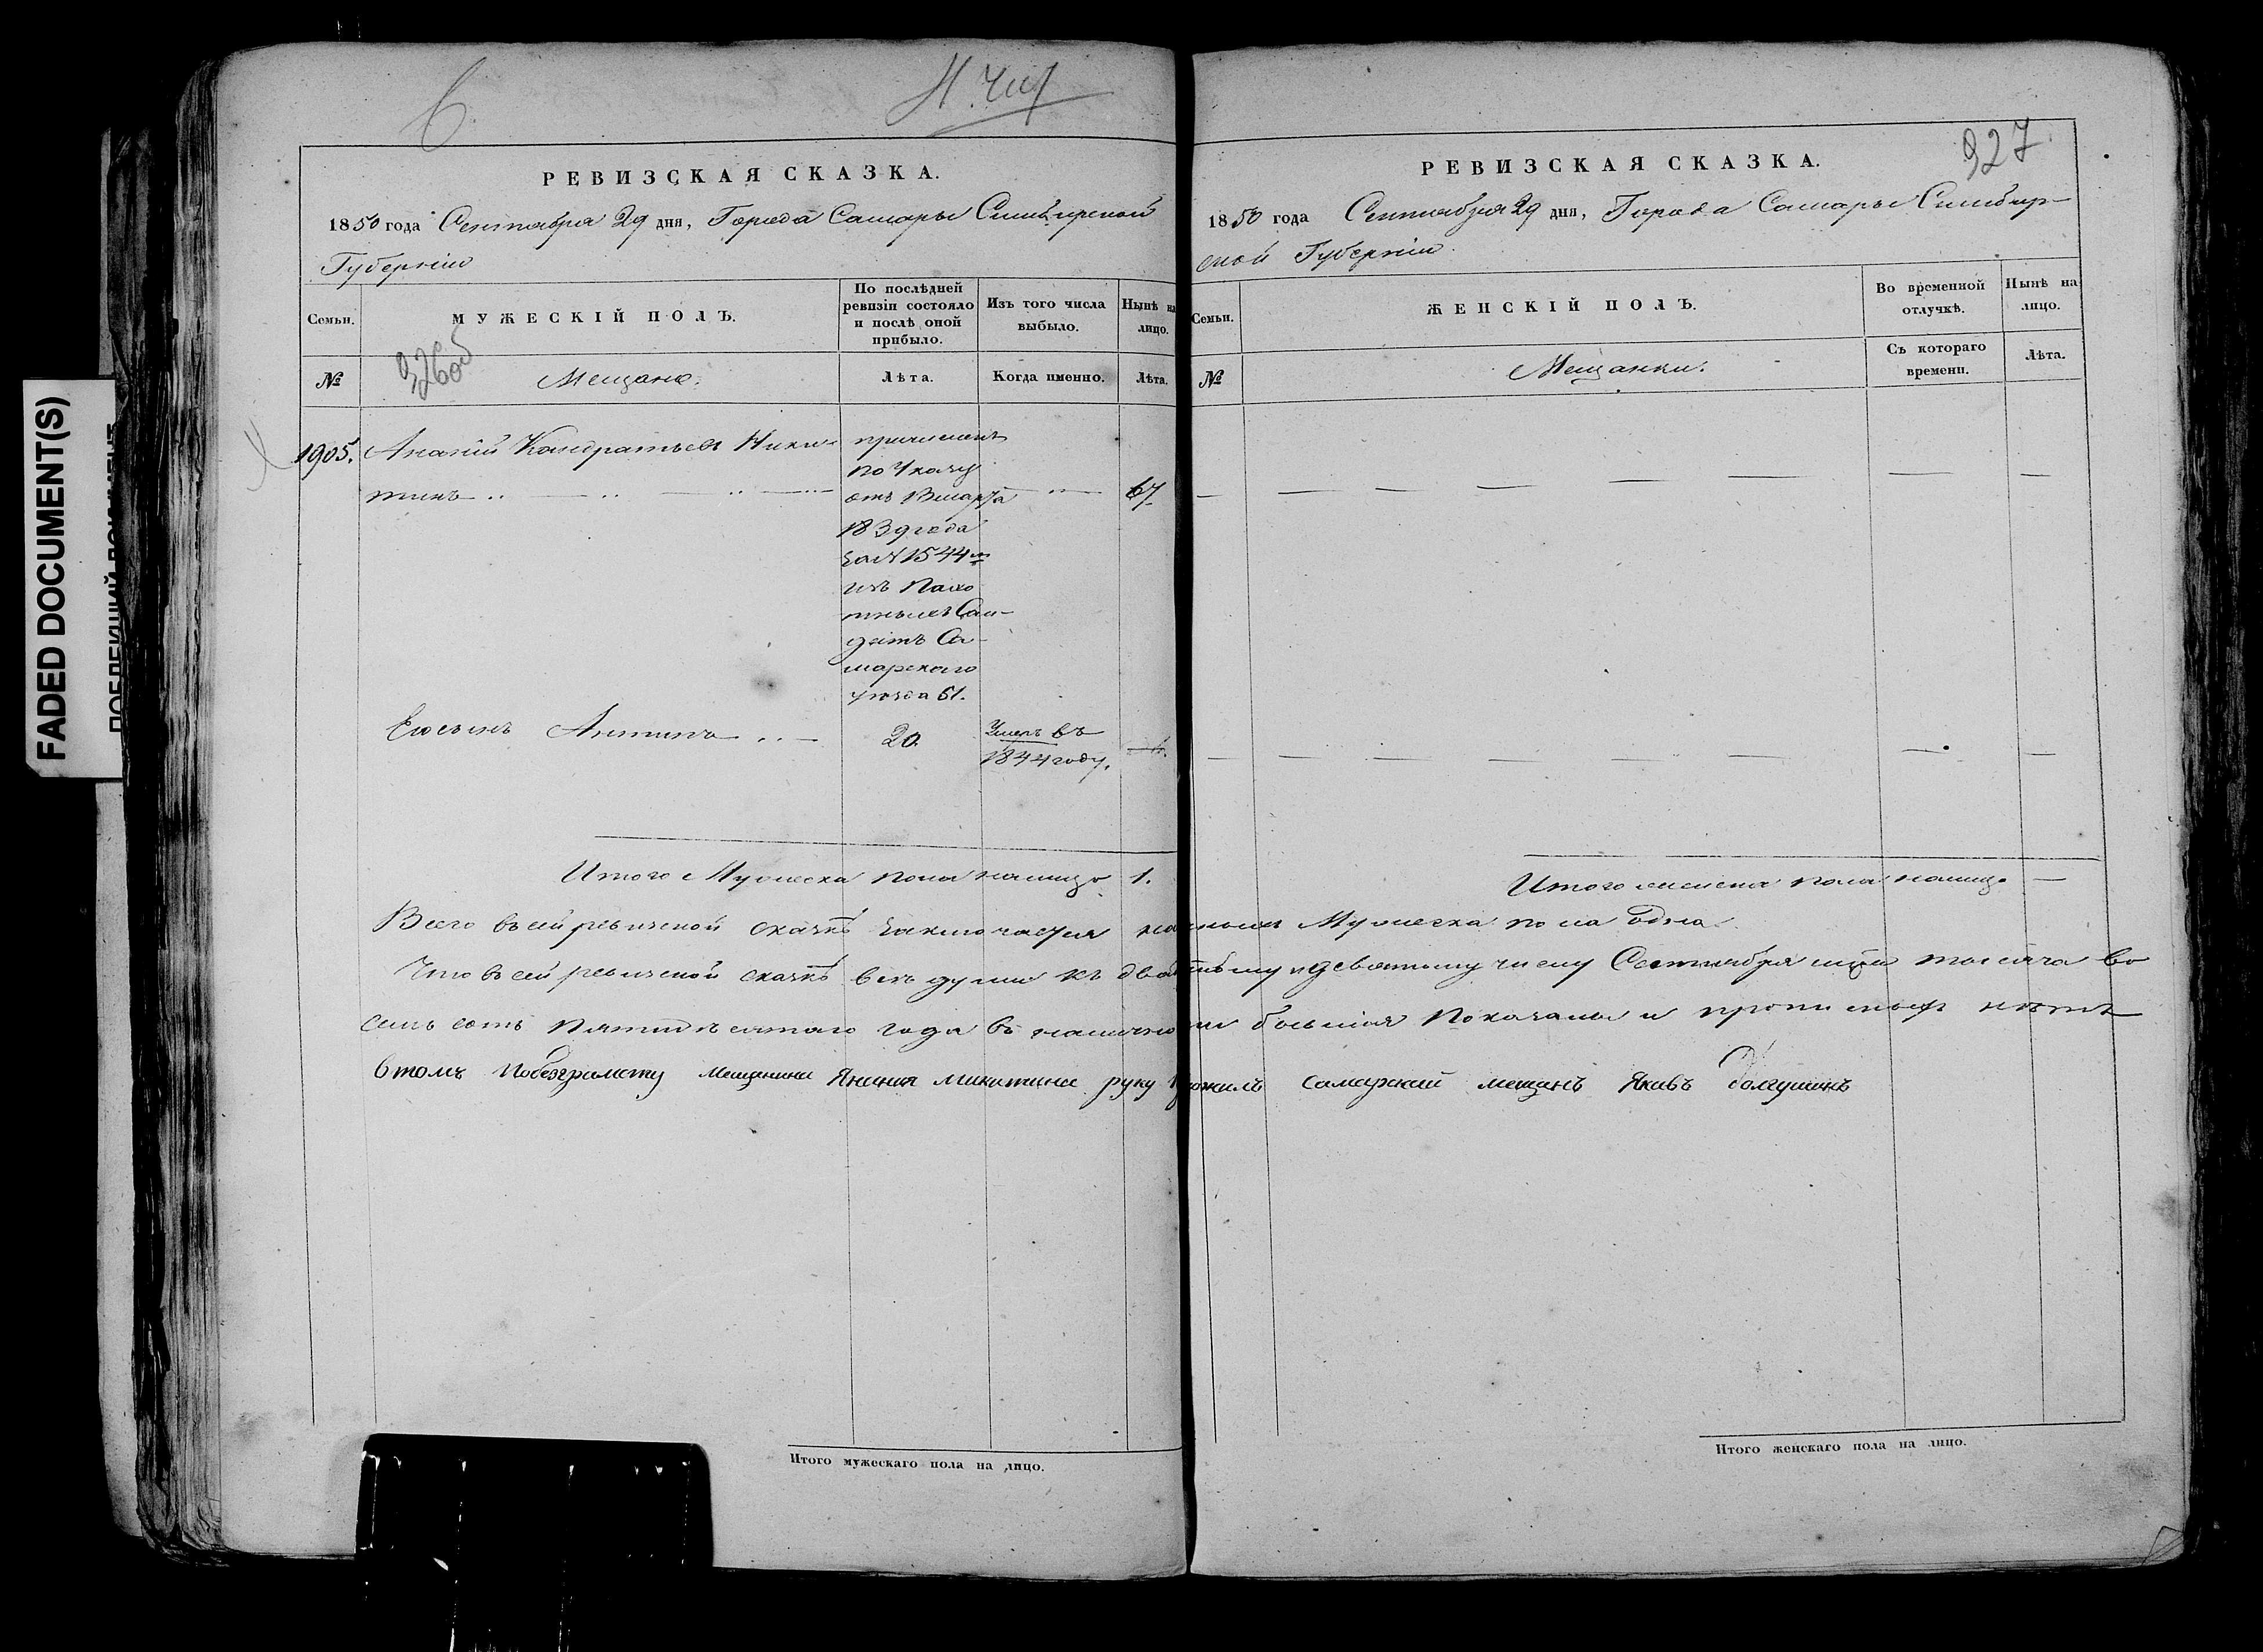 FADED DOCUMENT(S)
6
РЕВИЗСКАЯ СКАЗКА.
1850 года Сентября 29 дня, Города Самары Симбирской
Губерніи
Семьи.
МУЖЕСКІЙ ПОЛЪ.
По послѣдней
ревизіи состояло
и послѣ оной
прибыло.
Изъ того числа
выбыло.
Нынѣ на
лицо.
№
326об
Мещане.
Лѣта.
Когда именно.
Лѣта.
1905.
Ананій Кандратьевъ Ники-
тинъ
причисленъ
по Указу
отъ 13 марта
1839 года
за № 1544м
изъ Пахо
тныхъ Сал-
датъ Са-
марскаго
уезда 61.
67
Евосынъ Антипъ
20
Умеръ въ
1844 году.
Итого Мужеска пола налицо 1.
РЕВИЗСКАЯ СКАЗКА.
327
1850 года Сентября 29 дня, Города Самары Симбир-
ской Губерніи.
Семьи.
ЖЕНСКІЙ ПОЛЪ.
Во временной
отлучкѣ.
Нынѣ на
лицо.
№
Мещанки.
Съ котораго
времени.
Лѣта.
Итого женска пола налицо —
Всего въ сей ревизской сказкѣ заключается Мужеска пола одна.
Что въ сей ревизской сказкѣ всѣ души къ девятому числу Сентября тысяча во
семь сотъ пятидесятаго года въ бывшія показаны и нѣтъ
втомъ побезграмоту мещанина Янания Микитина руку приложилъ самарский мещанъ Яковъ Долгушинъ
Итого мужескаго пола на лицо.
Итого женскаго пола на лицо.